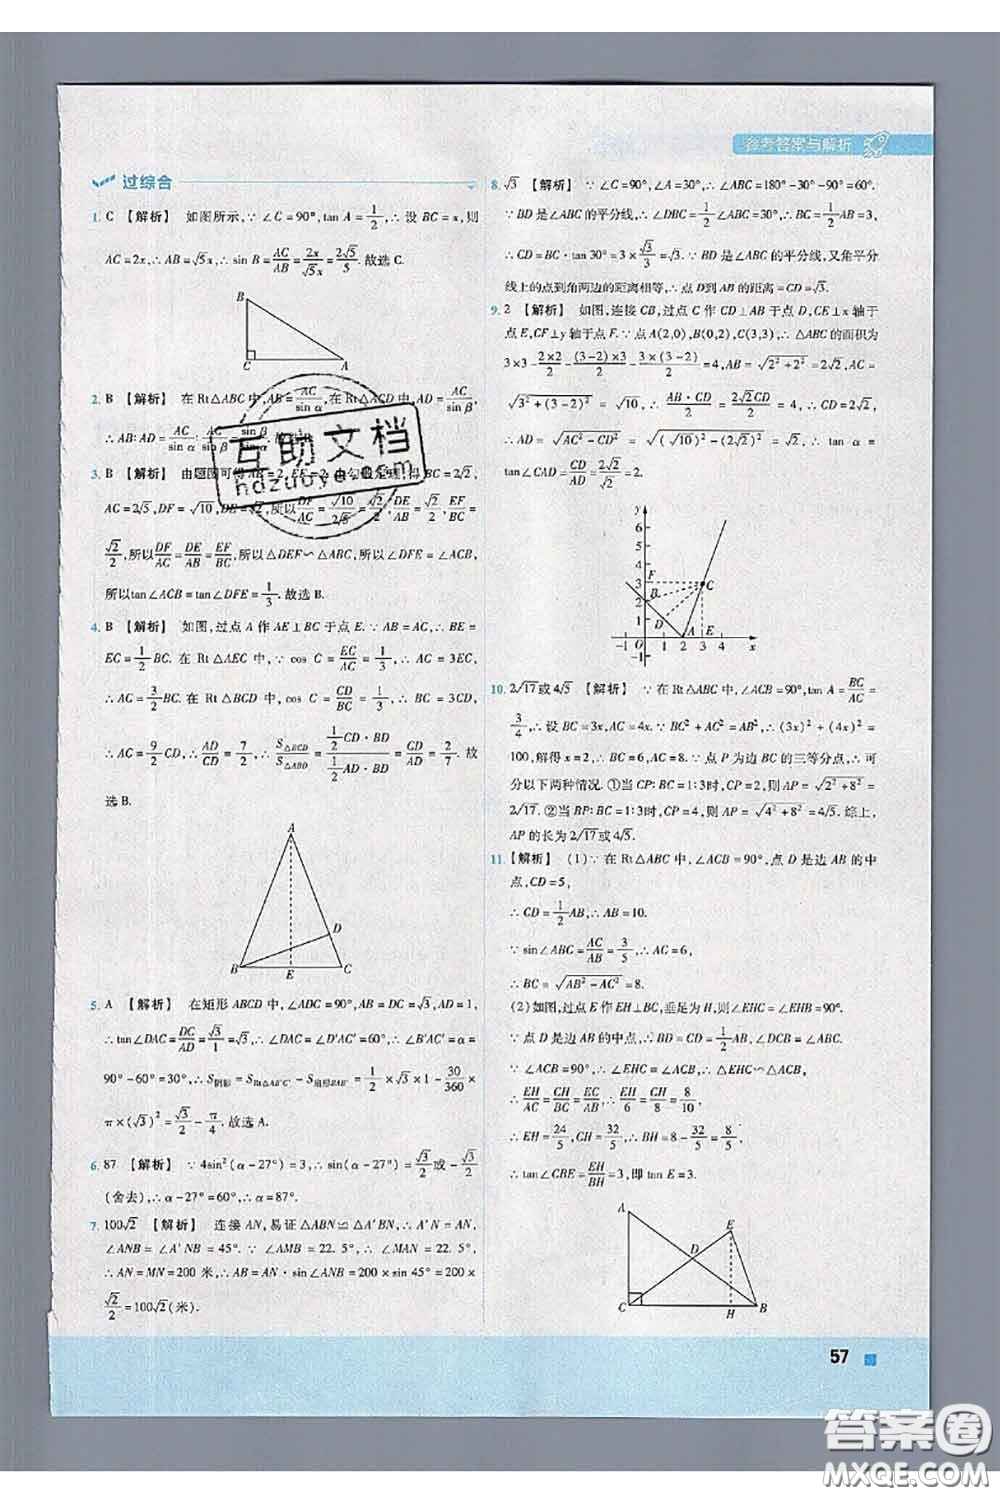 参考答案与解析
过综合
1. C 【解析】 如图所示,∵∠C=90°,tan A=1/2,∴设 BC=x,则
AC=2x,∴AB=√5x,∴sin B=AC/AB=2x/√5x=2√5/5. 故选 C.
B
C
A
2. B 【解析】 在 Rt△ABC 中,AB=AC/sin α,在 Rt△ACD 中,AD=AC/sin β,
∴AB∶AD=AC/sin α∶AC/sin β=sin β/sin α. 故选 B.
3. B 【解析】 由题图可得 AB=2,EF=2,由勾股定理,得 BC=2√2,
AC=2√5,DF=√10,DE=√2,所以DF/AC=√10/2√5=√2/2,DE/AB=√2/2,EF/BC=
√2/2,所以DF/AC=DE/AB=EF/BC,所以△DEF∽△ABC,所以∠DFE=∠ACB,
所以tan∠ACB=tan∠DFE=1/3. 故选 B.
4. B 【解析】 如图,过点 A 作 AE⊥BC 于点 E.∵AB=AC,∴BE=
EC=1/2BC.在 Rt△AEC 中,∵cos C=EC/AC=1/3,∴AC=3EC,
∴AC=3/2BC.在 Rt△BCD 中,cos C=CD/BC=1/3,∴BC=3CD,
∴AC=9/2CD,∴AD/CD=7/2,∴S△BCD/S△ABD=(1/2CD·BD)/(1/2AD·BD)=CD/AD=2/7. 故
选 B.
A
D
B
E
C
5. A 【解析】 在矩形 ABCD 中,∠ADC=90°,DC=√3,AD=1,
∴tan∠DAC=DC/AD=√3/1=√3,∴∠DAC=∠D'AC'=60°,∴∠B'AC'=α=
90°-60°=30°,∴S阴影=SRt△AB'C'-S扇形BAB'=1/2×√3×1-30/360
π×(√3)²=√3/2-π/4. 故选 A.
6. 87 【解析】 ∵4sin²(α-27°)=3,∴sin(α-27°)=√3/2或-√3/2
(舍去),∴α-27°=60°,∴α=87°.
7. 100√2 【解析】 连接 AN,易证△ABN≌△A'BN,∴A'N=AN,
∠ANB=∠A'NB=45°.∵∠AMB=22.5°,∴∠MAN=22.5°,
∴AN=MN=200 米,∴AB=AN·sin∠ANB=200×sin 45°=200×
√2/2=100√2(米).
8. √3 【解析】 ∵∠C=90°,∠A=30°,∴∠ABC=180°-30°-90°=60°.
∵BD 是∠ABC 的平分线,∴∠DBC=1/2∠ABC=30°,∴BC=1/2AB=3,
∴CD=BC·tan 30°=3×√3/3=√3.∵BD 是∠ABC 的平分线,又角平分
线上的点到角两边的距离相等,∴点 D到 AB 的距离=CD=√3.
9. 2 【解析】 如图,连接 CB,过点 C 作 CD⊥AB 于点 D,CE⊥x 轴于
点 E,CF⊥y 轴于点 F.∵点 A(2,0),B(0,2),C(3,3),∴△ABC 的面积为
3×3-2×2/2-(3-2)×3/2-3×(3-2)/2=4,AB=√2²+2²=2√2,AC=
√3²+(3-2)²=√10,∴AB·CD/2=2√2CD/2=4,∴CD=2√2,
∴AD=√AC²-CD²=√(√10)²-(2√2)²=√2,∴tan α=
tan∠CAD=CD/AD=2√2/√2=2.
y
6
5
4
F 3 C
2 B
1 D
-1 O 1 2 A 3 E 4 x
-1
10. 2√17或 4√5 【解析】 ∵在 Rt△ABC 中,∠ACB=90°,tan A=BC/AC=
3/4,∴设 BC=3x,AC=4x.∵BC²+AC²=AB²,∴(3x)²+(4x)²=
100,解得 x=2,∴BC=6,AC=8.∵点 P 为边 BC 的三等分点,∴可
分以下两种情况.①当 CP∶BC=1∶3时,CP=2,则 AP=√2²+8²=
2√17.②当 BP∶BC=1∶3时,CP=4,则 AP=√4²+8²=4√5.综上,
AP 的长为 2√17或 4√5.
11. 【解析】 (1)∵在 Rt△ABC 中,∠ACB=90°,点 D 是边 AB 的中
点,CD=5,
∴CD=1/2AB,∴AB=10.
∵sin∠ABC=AC/AB=3/5,∴AC=6,
∴BC=√AB²-AC²=8.
(2)如图,过点 E 作 EH⊥BC,垂足为 H,则∠EHC=∠EHB=90°.
∵点 D 是边 AB 的中点,∴BD=CD=1/2AB,∠DCB=∠ABC.
∵∠ACB=90°,∴∠EHC=∠ACB,∴△EHC∽△ACB,
∴EH/AC=CH/BC=EC/AB,∴EH/6=CH/8=8/10,
∴EH=24/5,CH=32/5,∴BH=8-32/5=8/5,
∴tan∠CBE=EH/BH=3,即 tan E=3.
A
E
D
C
H
B
57
互助文档
hdzuoye.com
答案圈
MXQE.COM